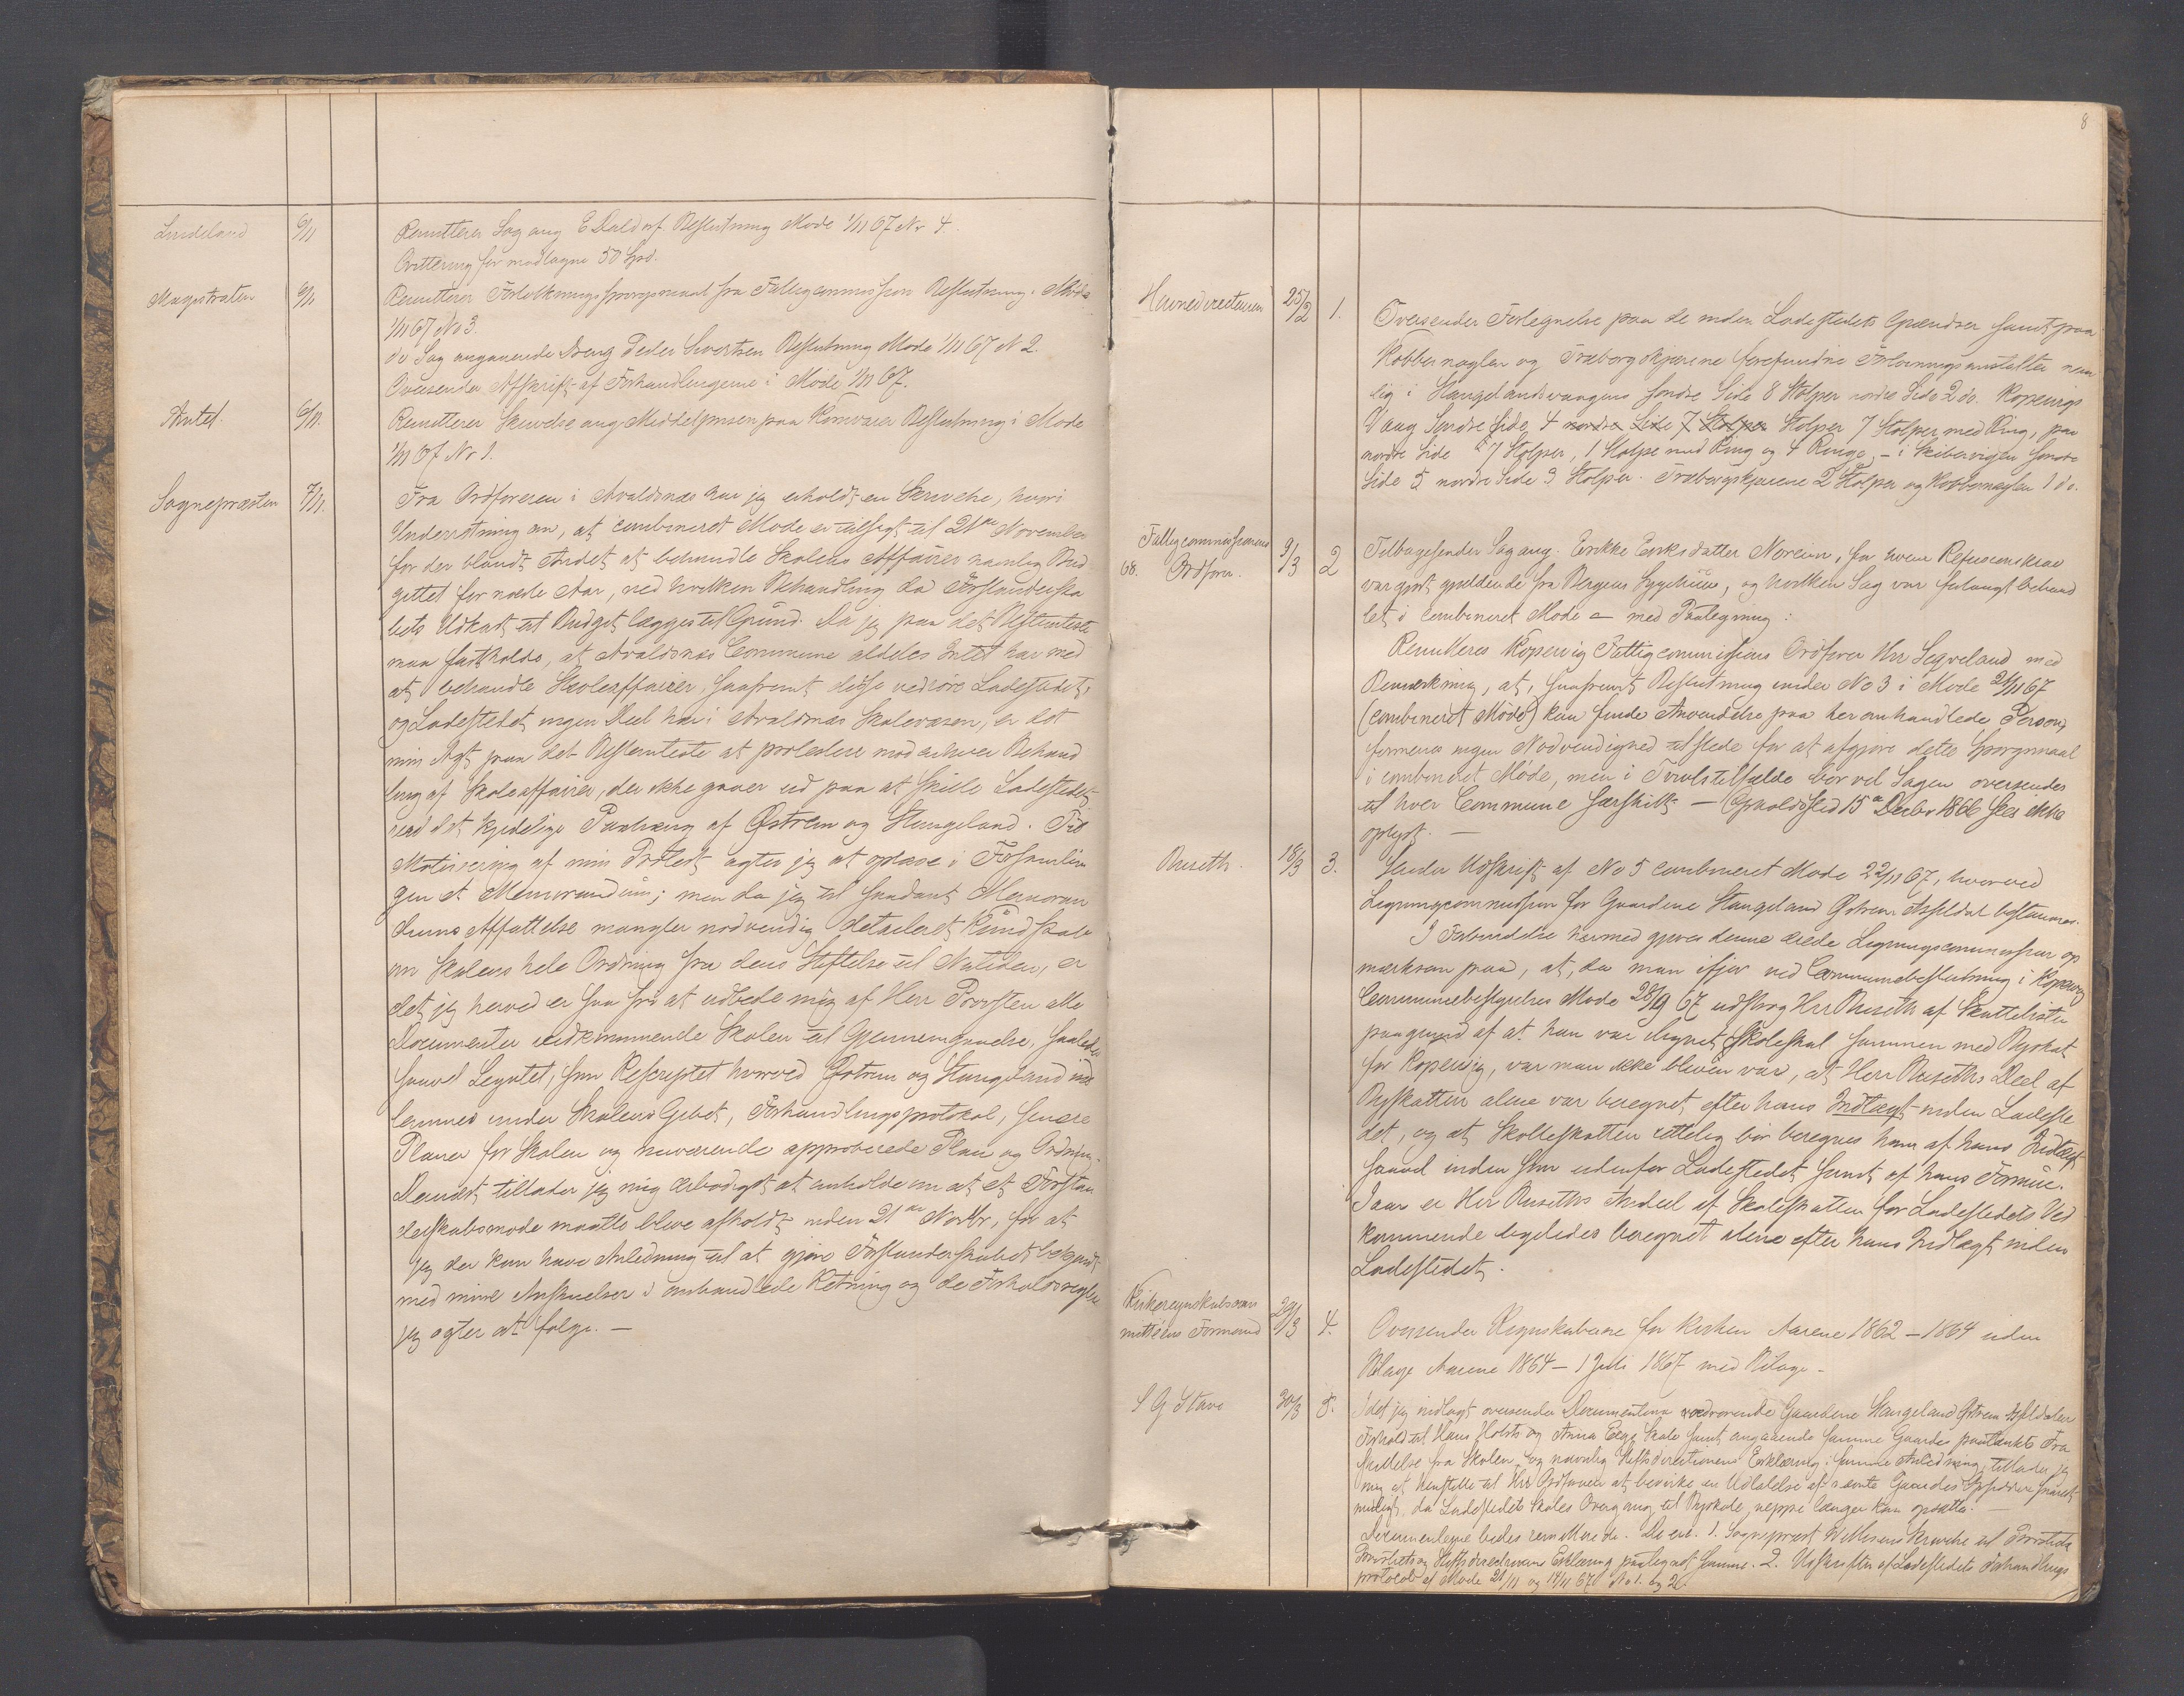 Lindeland 6/11 Remitterer Sag ang E Dald af Beslutning Møde 1/11 67 No 4.
Qvittering for modtagne 50 Spd.
Magistraten 6/11 Remitterer Fortolkningsspørgsmaal fra Fattigcommission Beslutning i Møde
1/11 67 No 3.
do Sag angaaende Dreng Peder Sivertsen Beslutning Møde 1/11 67 N 2.
Oversender Afskrift af Forhandlingerne i Møde 1/11 67.
Amtet 6/11. Remitterer Skrivelse ang Middelprisen paa Kornvarer Beslutning i Møde
1/11 67 Nr 1.
Sognepræsten 7/11. Fra Ordføreren i Avaldsnæs har jeg erholdt en Skrivelse, hvori
Underretning om, at combineret Møde er tilsagt til 21de November
for der blandt Andet at behandle Skolens Affairer navnlig Bud
gettet for næste Aar, ved hvilken Behandling da Forstanderska
bets Udkast til Budget lægges til Grund. Da jeg paa det Bestemteste
maa fastholde, at Avaldsnæs Commune aldeles Intet har med
at behandle Skoleaffairer, saafremt disse vedrøre Ladestedet,
og Ladestedet ingen Deel har i Avaldsnæs Skolevæsen, er det
min Agt paa det Bestemteste at protestere mod enhver Behand
ling af Skoleaffairer, der ikke gaaer ud paa at skille Ladestedet
ved det kjedelige Paahæng af Østrem og Stangeland. Til
Motivering af min Protest agter jeg at oplæse i Forsamlin
gen et Memorandum; men da jeg til saadant Memoran
dums Affattelse mangler nødvendig detaileret Kundskab
om Skolens hele Ordning fra dens Stiftelse til Nutiden, er
det jeg herved er saa fri at udbede mig af Herr Provsten alle
Documenter vedkommende Skolen til Gjennemgaaelse, saaledes
saavel Legatet, som Rescriptet hvorved Østrem og Stangeland ind
lemmes under Skolens Gebet, Forhandlingsprotokol, senere
Planer for Skolen og nuværende approberede Plan og Ordning.
Dernæst tillader jeg mig ærbødigst at anholde om at et Forstan
derskabsmøde maatte blive afholdt inden 21de Novbr, for at
jeg der kan have Anledning til at gjøre Forstanderskabet bekjendt
med mine Anskuelser i omhandlede Retning og de Forholdsregler
jeg agter at følge. —
8
Havnedirecteuren 25/2 1. Oversender Fortegnelse paa de inden Ladestedets Grændser samt paa
Kobbernaglen og Træborgskjærene forefundne Fortøiningsanstalter nem
lig i Stangelandsvaagens søndre Side 8 Stolper nordre Side 2 do. Kopervigs
Vaag Søndre Side 4 nordre Side 7 Stolper Stolper 7 Stolper med Ring, paa
nordre Side 7 Stolper, 1 Stolpe med Ring og 4 Ringe, — i Skibevigen søndre
Side 5 nordre Side 3 Stolper. Træborgskjærene 2 Stolper og Kobbernaglen 1 do.
Fattigcommissionens
68. Ordfører. 9/3 2 Tilbagesender Sag ang. Erikke Eriksdatter Noreim, for hvem Refusionskrav
var gjort gjældende fra Bergens Sygehuus, og hvilken Sag var forlangt behand
let i combineret Møde — med Paategning:
Remitteres Kopervig Fattigcommissions Ordfører Hrr Seqveland med
Bemærkning, at, saafremt Beslutning under No 3 i Møde 21/11 67
(combineret Møde) kan finde Anvendelse paa her omhandlede Person,
formenes ingen Nødvendighed tilstede for at afgjøre dette Spørgsmaal
i combineret Møde, men i Tvivlstilfælde bør vel Sagen oversendes
til hver Commune særskilt — Opholdssted 15de Decbr 1866 sees ikke
oplyst. —
Ruseth. 18/3 3. Sender Udskrift af No 5 combineret Møde 22/11 67, hvorved
Ligningscommission for Gaardene Stangeland Østrem Asfeldal bestemmes.
I Forbindelse hermed gjøres denne ærede Ligningscommission op
mærksom paa, at, da man ifjor ved Communebeslutning i Kopervig
Communebestyrelses Møde 28/9 67 udstrøg Hrr Ruseth af Skattelisten
paagrund af at han var ilignet Skoleskat sammen med Byskat
for Kopervig, var man ikke bleven var, at Herr Ruseths Deel af
Byskatten alene var beregnet efter hans Indtægt inden Ladeste
det, og at Skoleskatten rettelig bør beregnes ham af hans Indtægt
saavel inden som udenfor Ladestedet samt af hans Formue.
Iaar er Herr Ruseths Andeel af Skoleskatten for Ladestedets Ved
kommende ligeledes beregnet alene efter hans Indtægt inden
Ladestedet.
Kirkeregnskabscom
mitteens Formand 29/3 4. Oversender Regnskaberne for Kirken Aarene 1862 — 1864 uden
Bilage Aarene 1864 — 1 Juli 1867 med Bilage —
S G Stavø 30/3 5. Idet jeg indlagt oversender Documenterne vedrørende Gaardene Stangeland Østrem Asfeldalens
Forhold til Hans Holsts og Anna Eeges Skole samt angaaende samme Gaardes paatænkte Fra
skillelse fra Skolen, og navnlig Stiftsdirectionens Erklæring i samme Anledning, tillader jeg
mig at henstille til Hrr Ordføreren at bevirke en Udtalelse af nævnte Gaardes Opsiddere snarest
muligt, da Ladestedets Skoles Overgang til Byskole neppe længer kan opsættes. —
Documenterne bedes remitterede. De ere. 1. Sognepræst Willesens Skrivelse til Provstiet
Provstiets og Stiftsdirectionens Erklæring paategnet samme. 2. Udskrifter af Ladestedets Forhandlings
protocol af Møde 21/11 og 14/11 67 No 1. og 2.